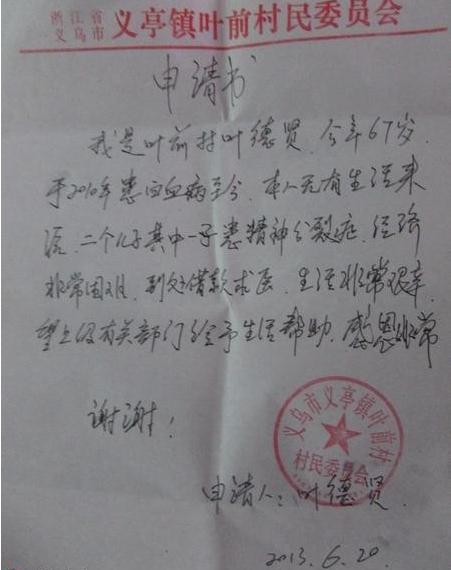 浙江省
义乌市
义亭镇叶前村民委员会
申请书
我是叶前村叶德贤，今年67岁，
于2010年患白血病至今，本人无有生活来
源，二个儿子其中一子患精神分裂症，经济
非常困难，到处借款求医，生活非常艰辛，
望上级有关部门给予生活帮助，感恩非常
谢谢！
义乌市义亭镇叶前村
村民委员会
申请人：叶德贤
2013.6.20